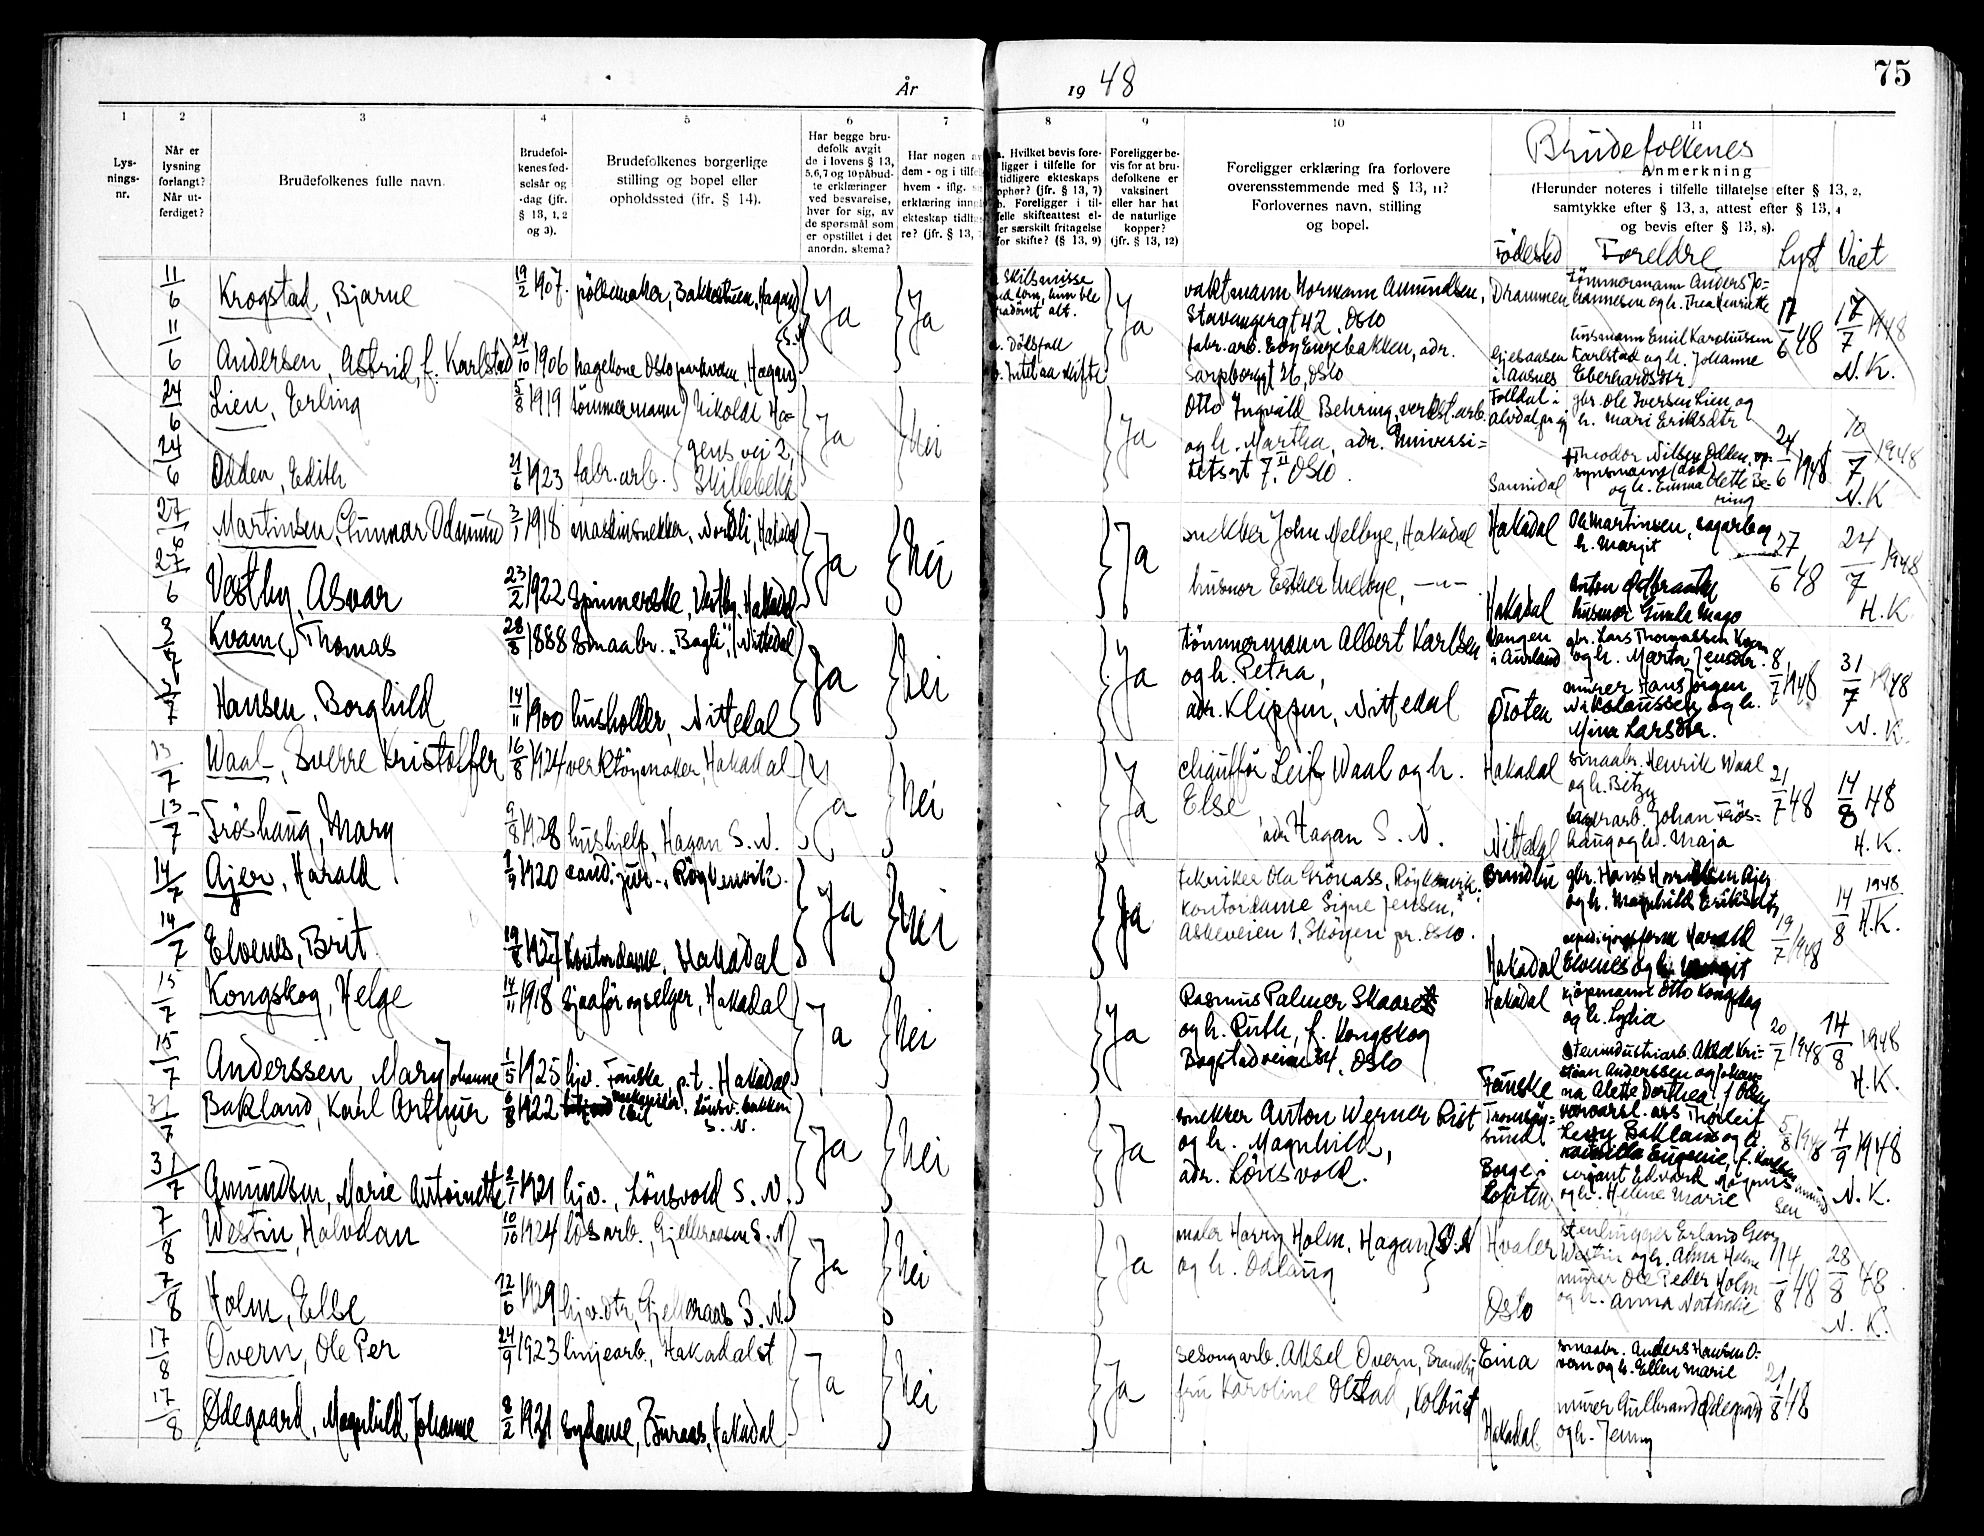 75
År 1948
1 2 3 4 5 6 7 8 9 10 11
Brudefolkenes
Lys-
nings-
nr.
Når er
lysning
forlangt?
Når ut-
ferdiget?
Brudefolkenes fulle navn.
Brudefol-
kenes fød-
selsår og
-dag (jfr.
§ 13, 1, 2
og 3).
Brudefolkenes borgerlige
stilling og bopel eller
opholdssted (jfr. § 14).
Har begge bru-
defolk avgit
de i lovens § 13,
5,6,7 og 10 påbud-
te erklæringer
ved besvarelse,
hver for sig, av
de spørsmål som
er opstillet i det
anordn. skema?
Har nogen av
dem - og i tilfel
hvem - iflg.
erklæring inn
ekteskap tidlig
re? (jfr. § 13,
a. Hvilket bevis fore-
ligger i tilfelle for
tidligere ekteskaps
ophør? (jfr. § 13, 7)
b. Foreligger i til-
felle skifteattest el-
ler særskilt fritagelse
for skifte? (§ 13, 9)
Foreligger be-
vis for at bru-
defolkene er
vaksinert
eller har hat
de naturlige
kopper?
(jfr. § 13, 12)
Foreligger erklæring fra forlovere
overensstemmende med § 13, 11?
Forlovernes navn, stilling
og bopel.
Anmerkning
(Herunder noteres i tilfelle tillatelse efter § 13, 2,
samtykke efter § 13, 3, attest efter § 13, 4
og bevis efter § 13, 8).
Fødested Foreldre Lyst Viet
11/6 Krogstad, Bjarne 19/2 1907. pölsemaker, Hagan Ja Ja Skilsmisse Ja vaktmann Hormann Amundsen, Drammen tömmermann Anders Jo-
hannesen og h. Thea Henriette
Stavangergt 42, Oslo 17/6 48 17/7 1948
11/6 Andersen, Astrid, f. Karlstad 24/10 1906 hagekone Osloparkvesen, (Hagan) S.N. a. Dödsfall fabr.arb. adr.
b. Intet aa skifte Sarpborggt 26, Oslo i Aasnes Karlstad og h. Johanne
Eberhardsdtr N. K.
24/6 Lien, Erling 5/8 1919 tömmermann Nikolai Ha-
gens vei 2,
Skillebekk Ja Nei Ja Otto Ingvald Behring, verkst.arb. Folldal i
Alvdal gbr. Ole Iversen Lien og
h. Mari Eriksdtr
og h. Martha, adr. Universi-
tetsgt 7. II Oslo. 24/6 1948 10/7 1948
24/6 Odden, Edith 21/6 1923 fabr.arb. Sannidal Theodor Nilsen Odden,
(död)
og h. Emma Olette Be-
ring N. K
27/6 Martinsen, Gunnar Odmund 3/1 1918 maskinsnekker, Nordli, Hakadal Ja Nei Ja snekker John Melbye, Hakadal Hakadal Ola Martinsen, sagarb og
h. Margit 27/6 48 24/7 1948
27/6 Vestby, Asvar 23/2 1922 Spinnerske, Vestby, Hakadal husmor Esther Melbye, —"— Hakadal Anton
husmor Gunda Mago H. K
3/7 Kvam, Thomas 28/8 1888 Smaabr. "Bagli", Nittedal Ja Nei Ja tömmermann Albert Karlsen
og h. Petra,
adr. Klippen, Nittedal Vangen
i Aurland gbr. Lars Thomassen Kvam
og h. Marta Jensdtr. 8/7 1948 31/7 1948
3/7 Hansen, Borghild 14/11 1900 husholder, Nittedal Toten murer Hans Jörgen
Nikolaussen og h.
Mina Larsdtr. N. K.
13/7 Waal, Sverre Kristoffer 16/8 1924 verktöymaker, Hakadal Ja Nei Ja Leif Waal og h.
Else
adr Hagan S. N. Hakadal smaabr. Henrik Waal
og h. Betzy 21/7 48 14/8 48
13/7 Tröshaug, Mary 9/8 1928 hushjelp, Hagan S. N. Nittedal Johan Trös-
haug og h. Maja H. K.
14/7 Ajer, Harald 1920 cand. jur., Röykenvik. Ja Nei Ja tekniker Ola Grönaas, Röykenvik. Brandbu gbr. Hans Ajer
og h. Magnhild Eriksdtr 14/8 1948
14/7 Elvenes, Brit 19/8 1927 Kontordame, Hakadal kontordame Signe Jensen,
Askeveien 1, Skøyen pr. Oslo. Hakadal Harald
Elvenes og h. Margit 19/7 1948 H. K.
15/7 Kongskog, Helge 14/11 1918 Sjaafør og selger, Hakadal Ja Nei Ja Rasmus Palmer Skaaret
og h. Ruth, f. Kongskog
Bogstadveien 34, Oslo Hakadal kjöpmann Otto Kongskog
og h. Lydia 20/7 1948 14/8 1948
15/7 Anderssen, Mary Johanne 1/5 1925 hjv. Fauske, p.t. Hakadal Fauske Stenindustriarb. Aksel Kri-
stian Anderssen og Johan-
na Alette Dorthea, f. Olsen H. K.
31/7 Bakland, Karl Arthur 6/8 1922 S. N. Ja Nei Ja snekker Anton Werner Rist
og h. Magnhild,
adr. Lönsvold. Bakland og h.
Eugenie, f. Karlsen 5/8 1948 4/9 1948
31/7 Amundsen, Marie Antoinette 2/1 1921 hjv. Lönsvold S. N. Borge i
Lofoten sersjant Edvard Magnus Amund
sen
og h. Helene Marie N. K.
7/8 Westin, Halvdan 10/10 1924 lösarb., Gjelleraasen S. N Ja Nei Ja maler Harry Holm, Hagan S.N
og h. Odlaug Hvaler stenhugger Erland Georg
Westin og h. Alma Helene 14/8 48 28/8 48
7/8 Holm, Else 12/6 1929 hjv. dtr, Gjelleraas S. N. Oslo murer Ole Peder Holm
og h. Anna Nathalie N. K.
17/8 Overn, Ole Per 24/9 1923 linjearb., Hakadal st Ja Nei Ja sesongarb. Aksel Overn, Brandbu
fru Karoline Olstad, Kolbu st Eina smaabr. Anders Hansen O-
vern og h. Ellen Marie 21/8 48
17/8 Ödegaard, Magnhild Johanne 8/2 1921 sydame, Buraas, Hakadal Hakadal murer Gulbrand Ödegaard
og h. Jenny